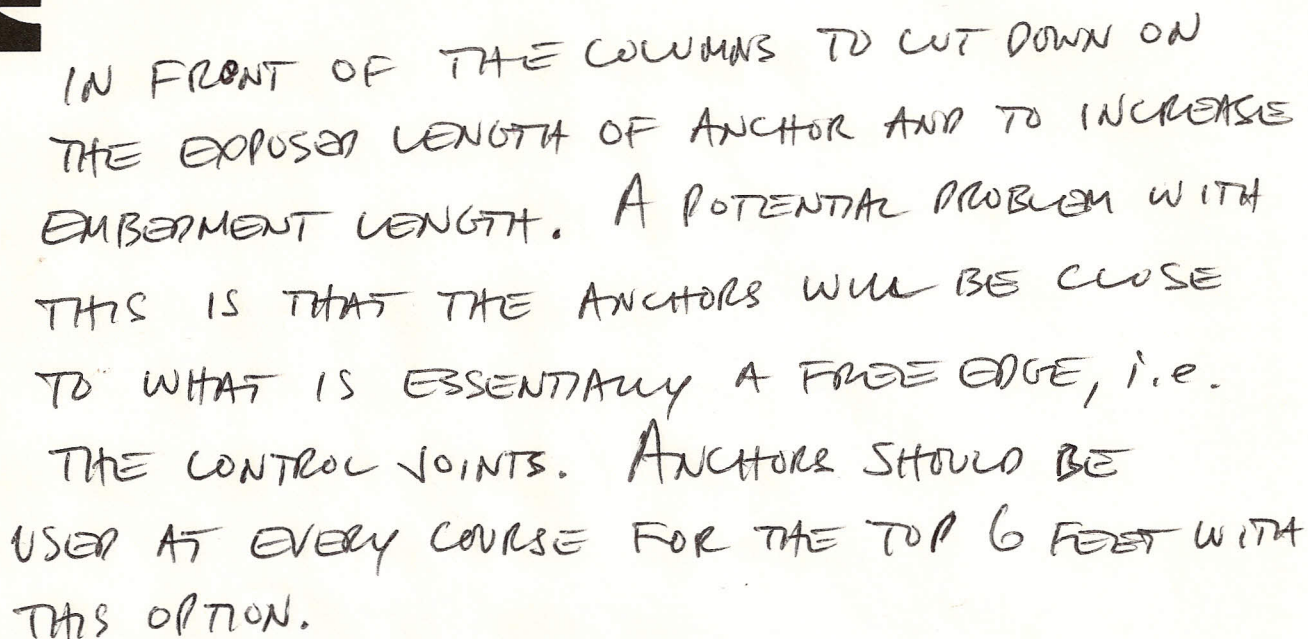 IN FRONT OF THE COLUMNS TO CUT DOWN ON
THE EXPOSED LENGTH OF ANCHOR AND TO INCREASE
EMBEDMENT LENGTH. A POTENTIAL PROBLEM WITH
THIS IS THAT THE ANCHORS WILL BE CLOSE
TO WHAT IS ESSENTIALLY A FREE EDGE, i.e.
THE CONTROL JOINTS. ANCHORS SHOULD BE
USED AT EVERY COURSE FOR THE TOP 6 FEET WITH
THIS OPTION.